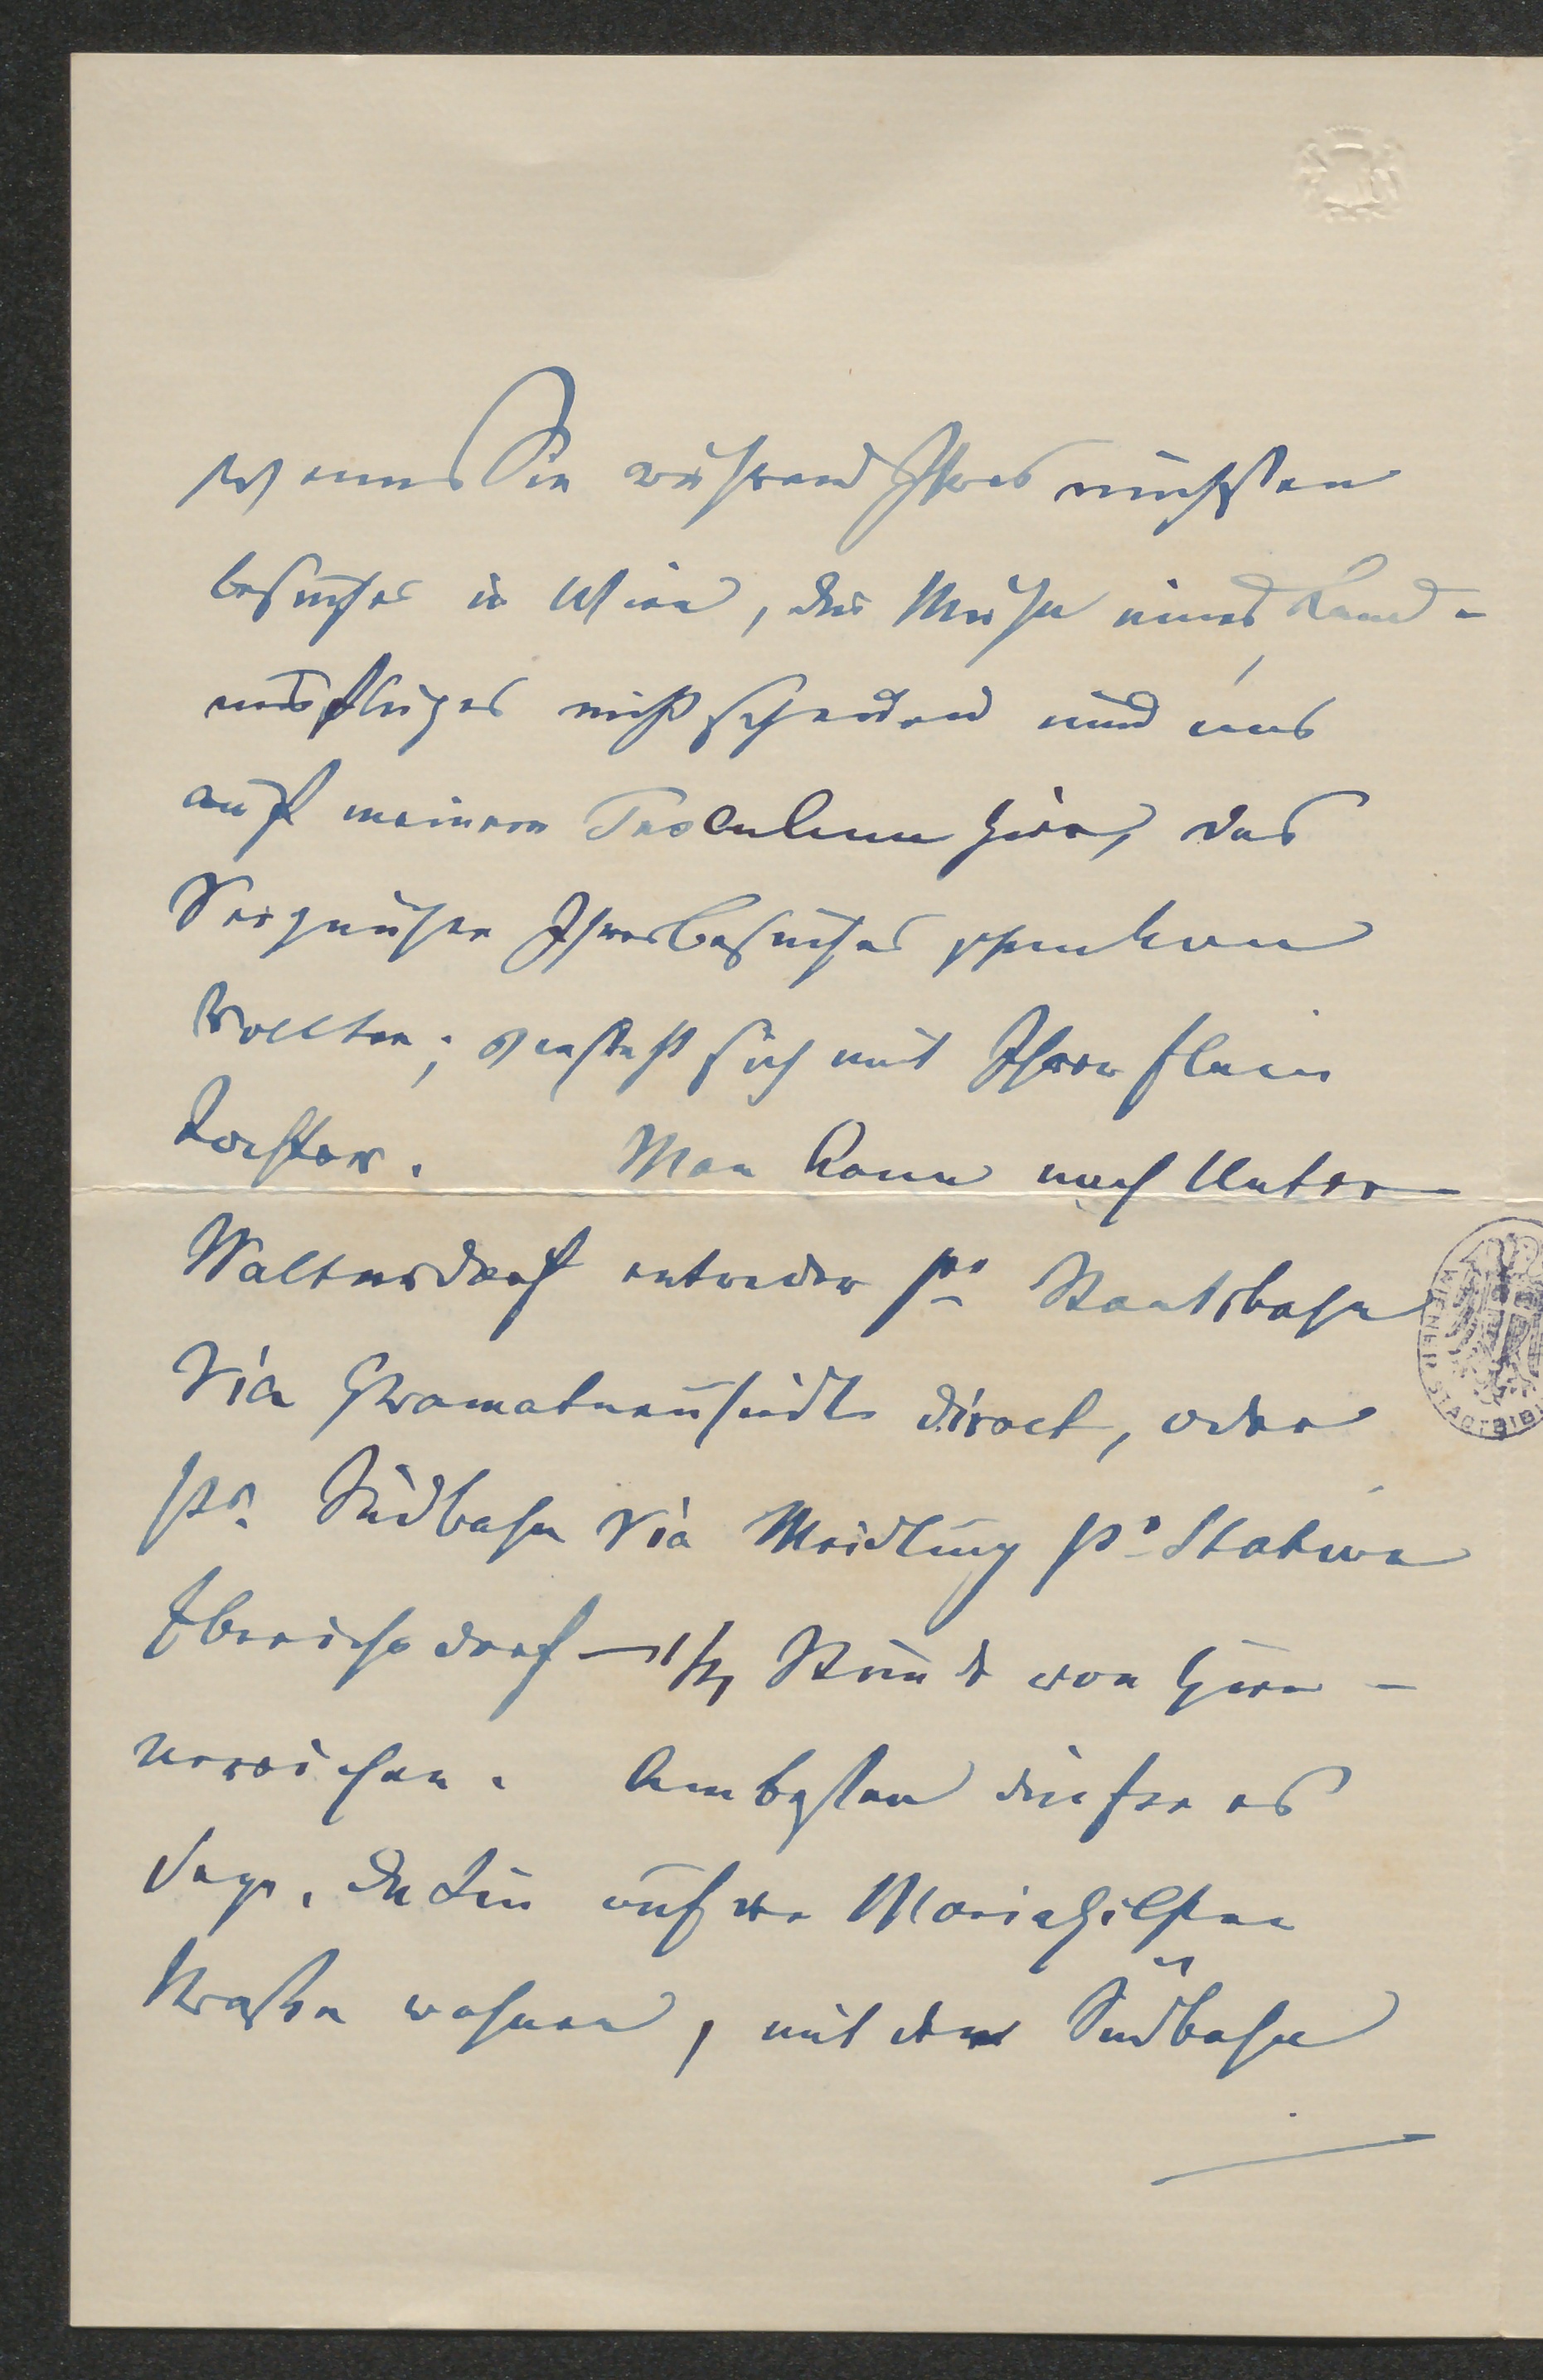 wenn Sie während Ihres nächsten
Besuches in Wien, die Mühe eines Land-
ausfluges nicht scheuend und uns
auf meinem Tusculum hier, das
Vergnügen Ihres Besuches schenken
wollten; versteht sich mit Ihrer Frln
Tochter. Man kann nach Unter-
Waltersdorf entweder pr Staatsbahn
via Gramatneusiedl direct, oder
pr. Südbahn via Meidling pr Station
Ebreichsdorf — 1/4 Stunde von hier —
erreichen. Am besten dürfte es
da Sie auf der Mariahilfer
Strasse wohnen, mit der Südbahn
WIENER STADTBIBL